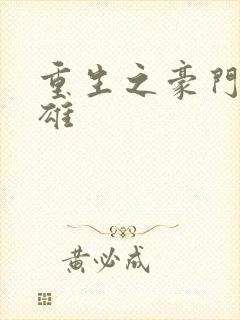 重生之豪門
雄
黃必成